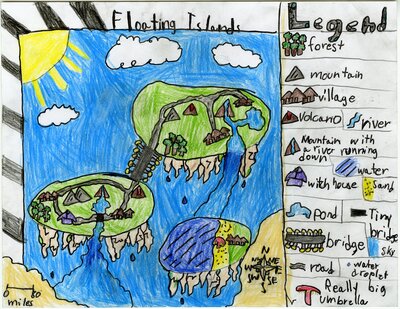 Floating Islands
Legend
forest
mountain
village
volcano
river
Mountain with
a river running
down
water
witch house
sand
pond
Tiny
bridge
bridge
sky
road
water
droplet
Really big
umbrella
N
NW NE
W E
SW SE
S
0 80
miles